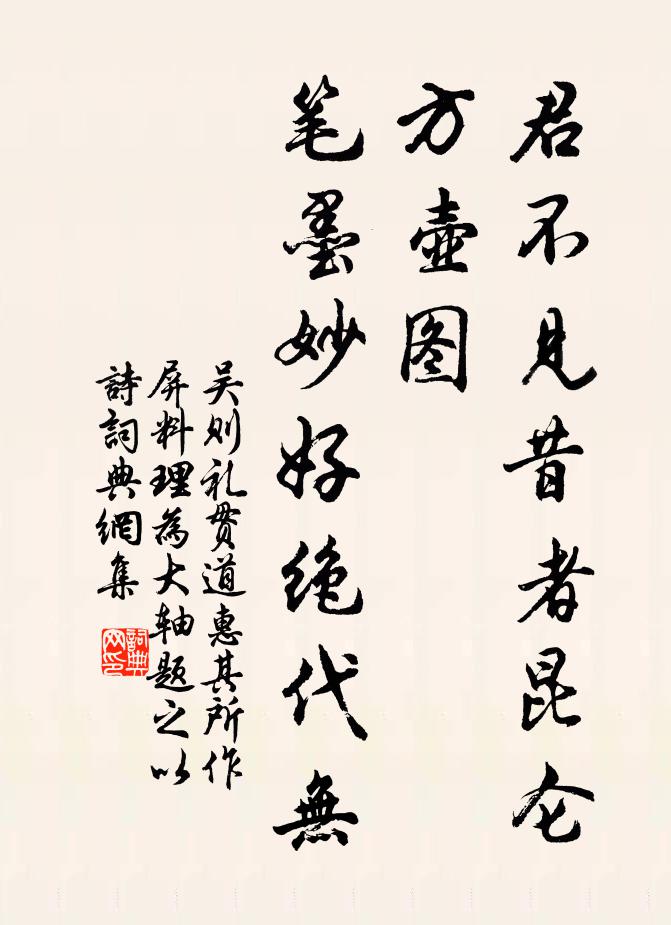 君不见昔者昆仑
方壶图
笔墨妙好绝代無
吴则礼贯道惠其所作
屏料理為大轴题之以
詩詞典網集
詞典
网印